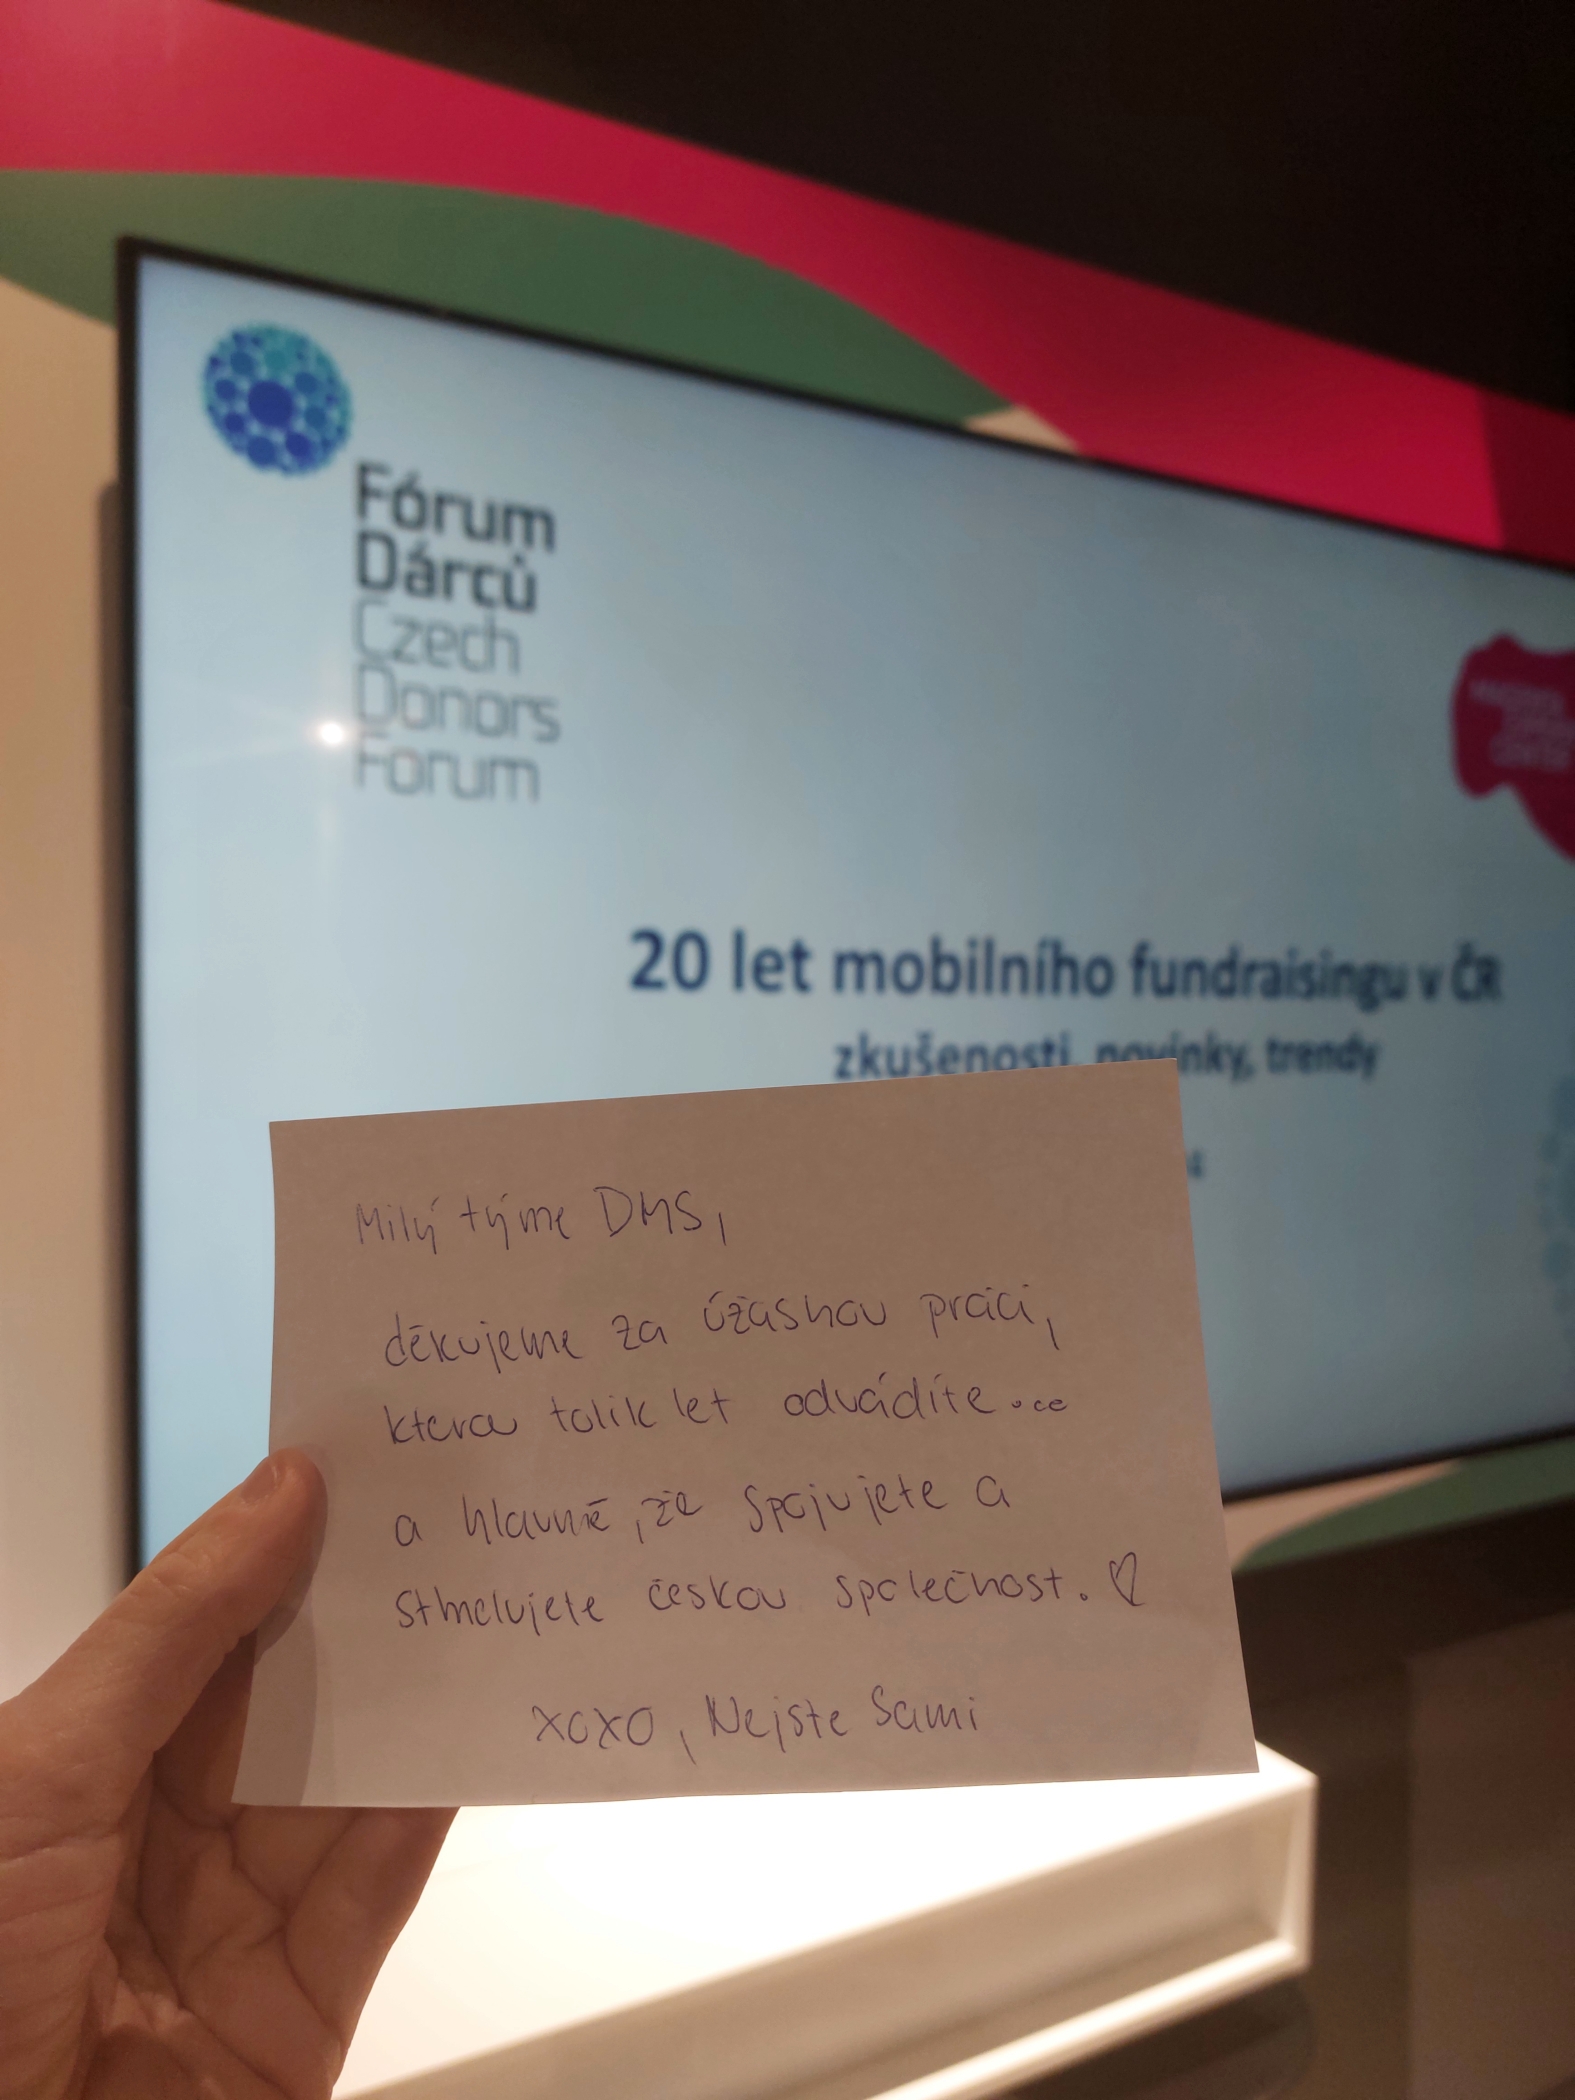 Fórum
Dárců
Czech
Donors
Forum
20 let mobilního fundraisingu v ČR
zkušenosti, novinky, trendy
Milý týme DMS,
děkujeme za úžasnou práci,
kterou tolik let odvádíte...
a hlavně, že spojujete a
stmelujete českou společnost. ♡
XOXO, Nejste Sami